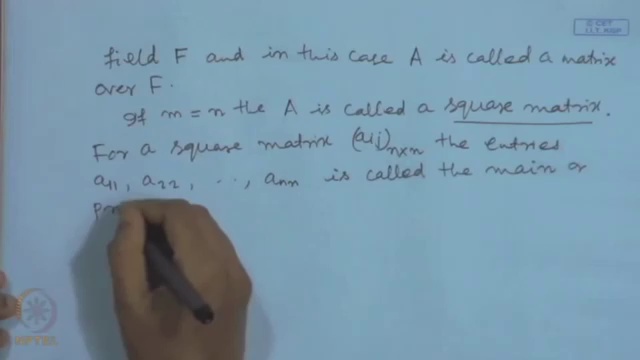 © CET
I.I.T. KGP
field F and in this case A is called a matrix
over F.
If m = n the A is called a square matrix.
For a square matrix (aij)n×n the entries
a11, a22, ..., ann is called the main or
pr
NPTEL